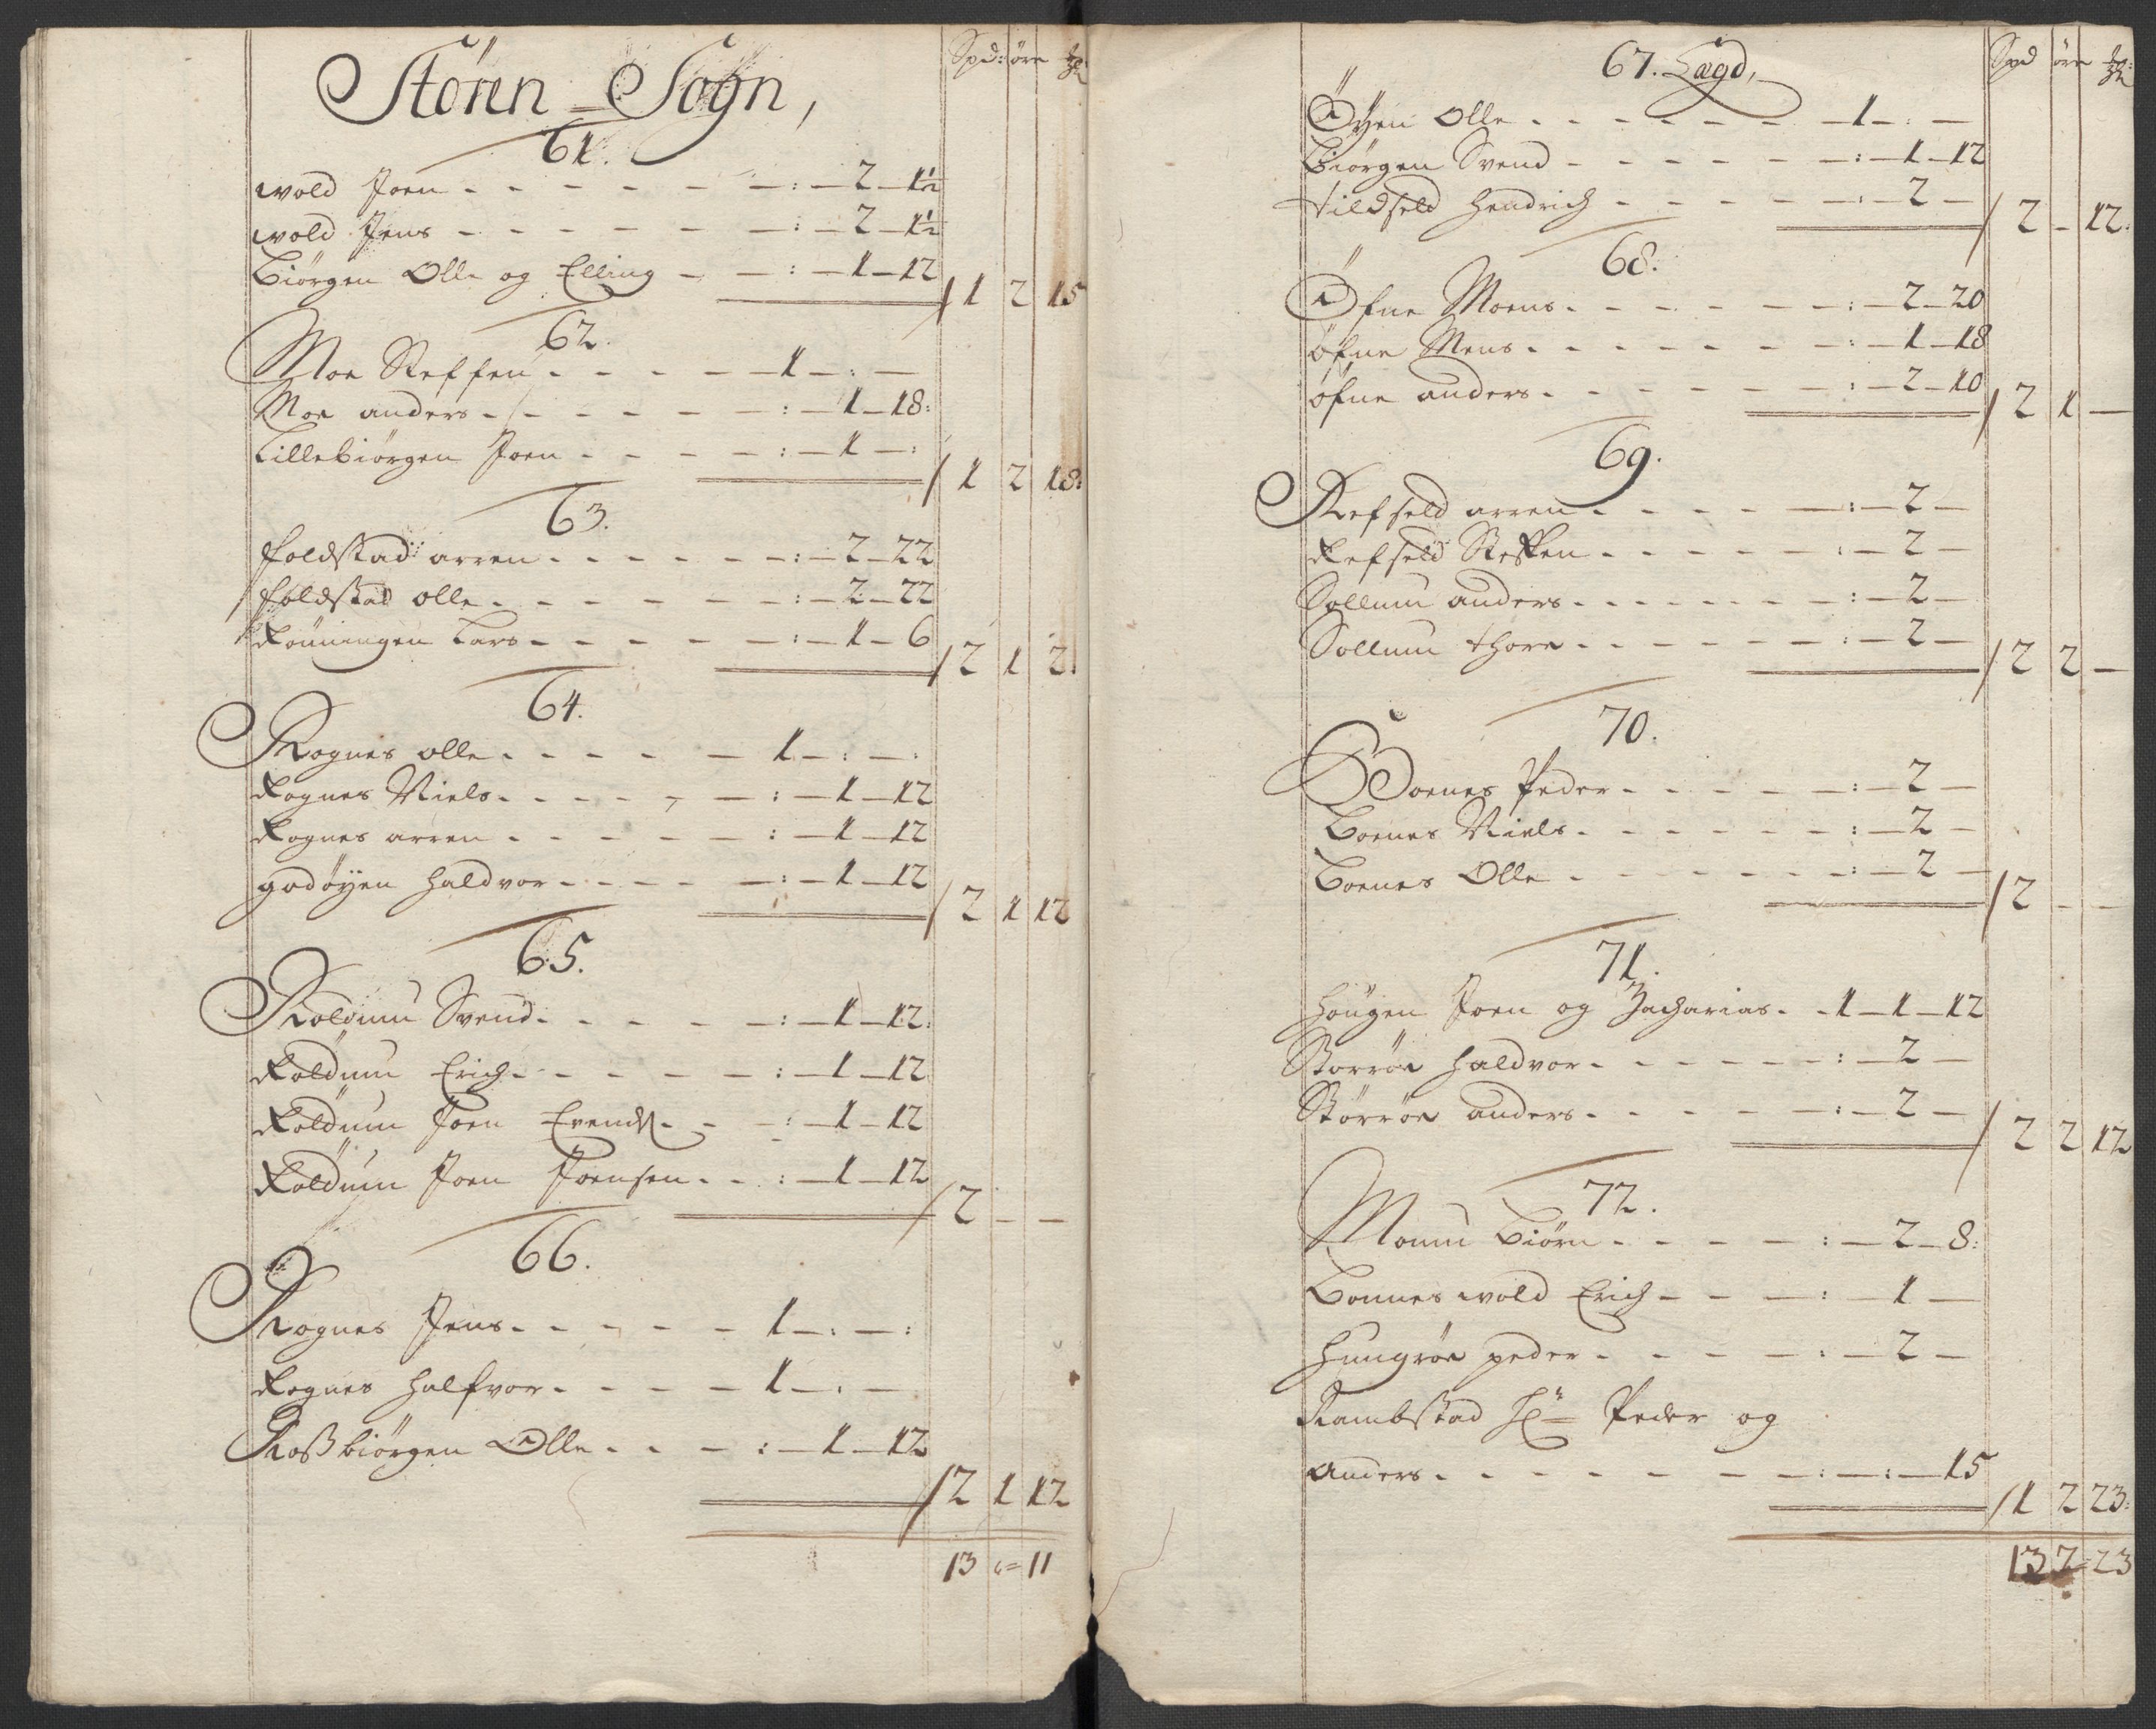 Støren Sogn,
Spd: öre
61.
wold Joen - - - - - - - : - 2 - 1½
wold Jens - - - - - - - : - 2 - 1½
Biörgen Olle og Elling - - : - 1 - 12
/ 1 2 15
62.
Moe Steffen - - - - - 1 - : -
Moe anders - - - - - - : - 1 - 18:
Lillebiörgen Joen - - - - : - 1 - :
/ 1 2 18:
63.
foldstad arren - - - - - - : - 2 - 22
foldstad olle - - - - - - : - 2 - 22
Rönningen Lars - - - - - : - 1 - 6
/ 2 1 2
64.
Rognes olle - - - - - 1 - : - :
Rognes Niels - - - - - - : - 1 - 12
Rognes arren - - - - - : - 1 - 12
godöyen haldvor - - - - - : - 1 - 12
/ 2 1 12
65.
Koldum Svend - - - - - : - 1 - 12:
Koldum Erich - - - - - - : - 1 - 12
Koldum Joen Evends - - - : - 1 - 12
Koldum Joen Joensen - - : - 1 - 12
/ 2 - -
66.
Rognes Jens - - - - - 1 - : - :
Rognes halfvor - - - - 1 - : -
Roßbiörgen Olle - - - : - 1 - 12
/ 2 1 12
13 " = 11
67. Lægd,
Spd öre
Öyen Olle - - - - - - 1 - : -
Biörgen Svend - - - - - - : - 1 - 12
Vildseld Hendrich - - - - - : - 2 -
/ 2 - 12:
68.
Öfne Moens - - - - - - : - 2 - 20
öfne Mens - - - - - - : - 1 - 18
öfne anders - - - - - - : - 2 - 10
/ 2 1 -
69.
Refseld arren - - - - - : - 2 -
Refseld Steffen - - - - - : - 2 -
Sollum anders - - - - - - : - 2 -
Sollum thore - - - - - : - 2 -
/ 2 2 -
70.
Boenes Peder - - - - - : - 2 -
Boenes Niels - - - - - - : - 2 -
Boenes Olle - - - - - - : - 2 -
/ 2 - -
71.
Hougen Joen og Zacharias - - 1 - 1 - 12
Storröe haldvor - - - - - : - 2 -
Störröe anders - - - - - : - 2 -
/ 2 2 12
72.
Moum Biörn - - - - - : - 2 - 8:
Bonnes wold Erich - - - : - 1 -
Hungröe peder - - - - - : - 2 -
Rambstad Peder og
Anders - - - - - - - : - : - 15
/ 1 2 23:
13 2 = 23